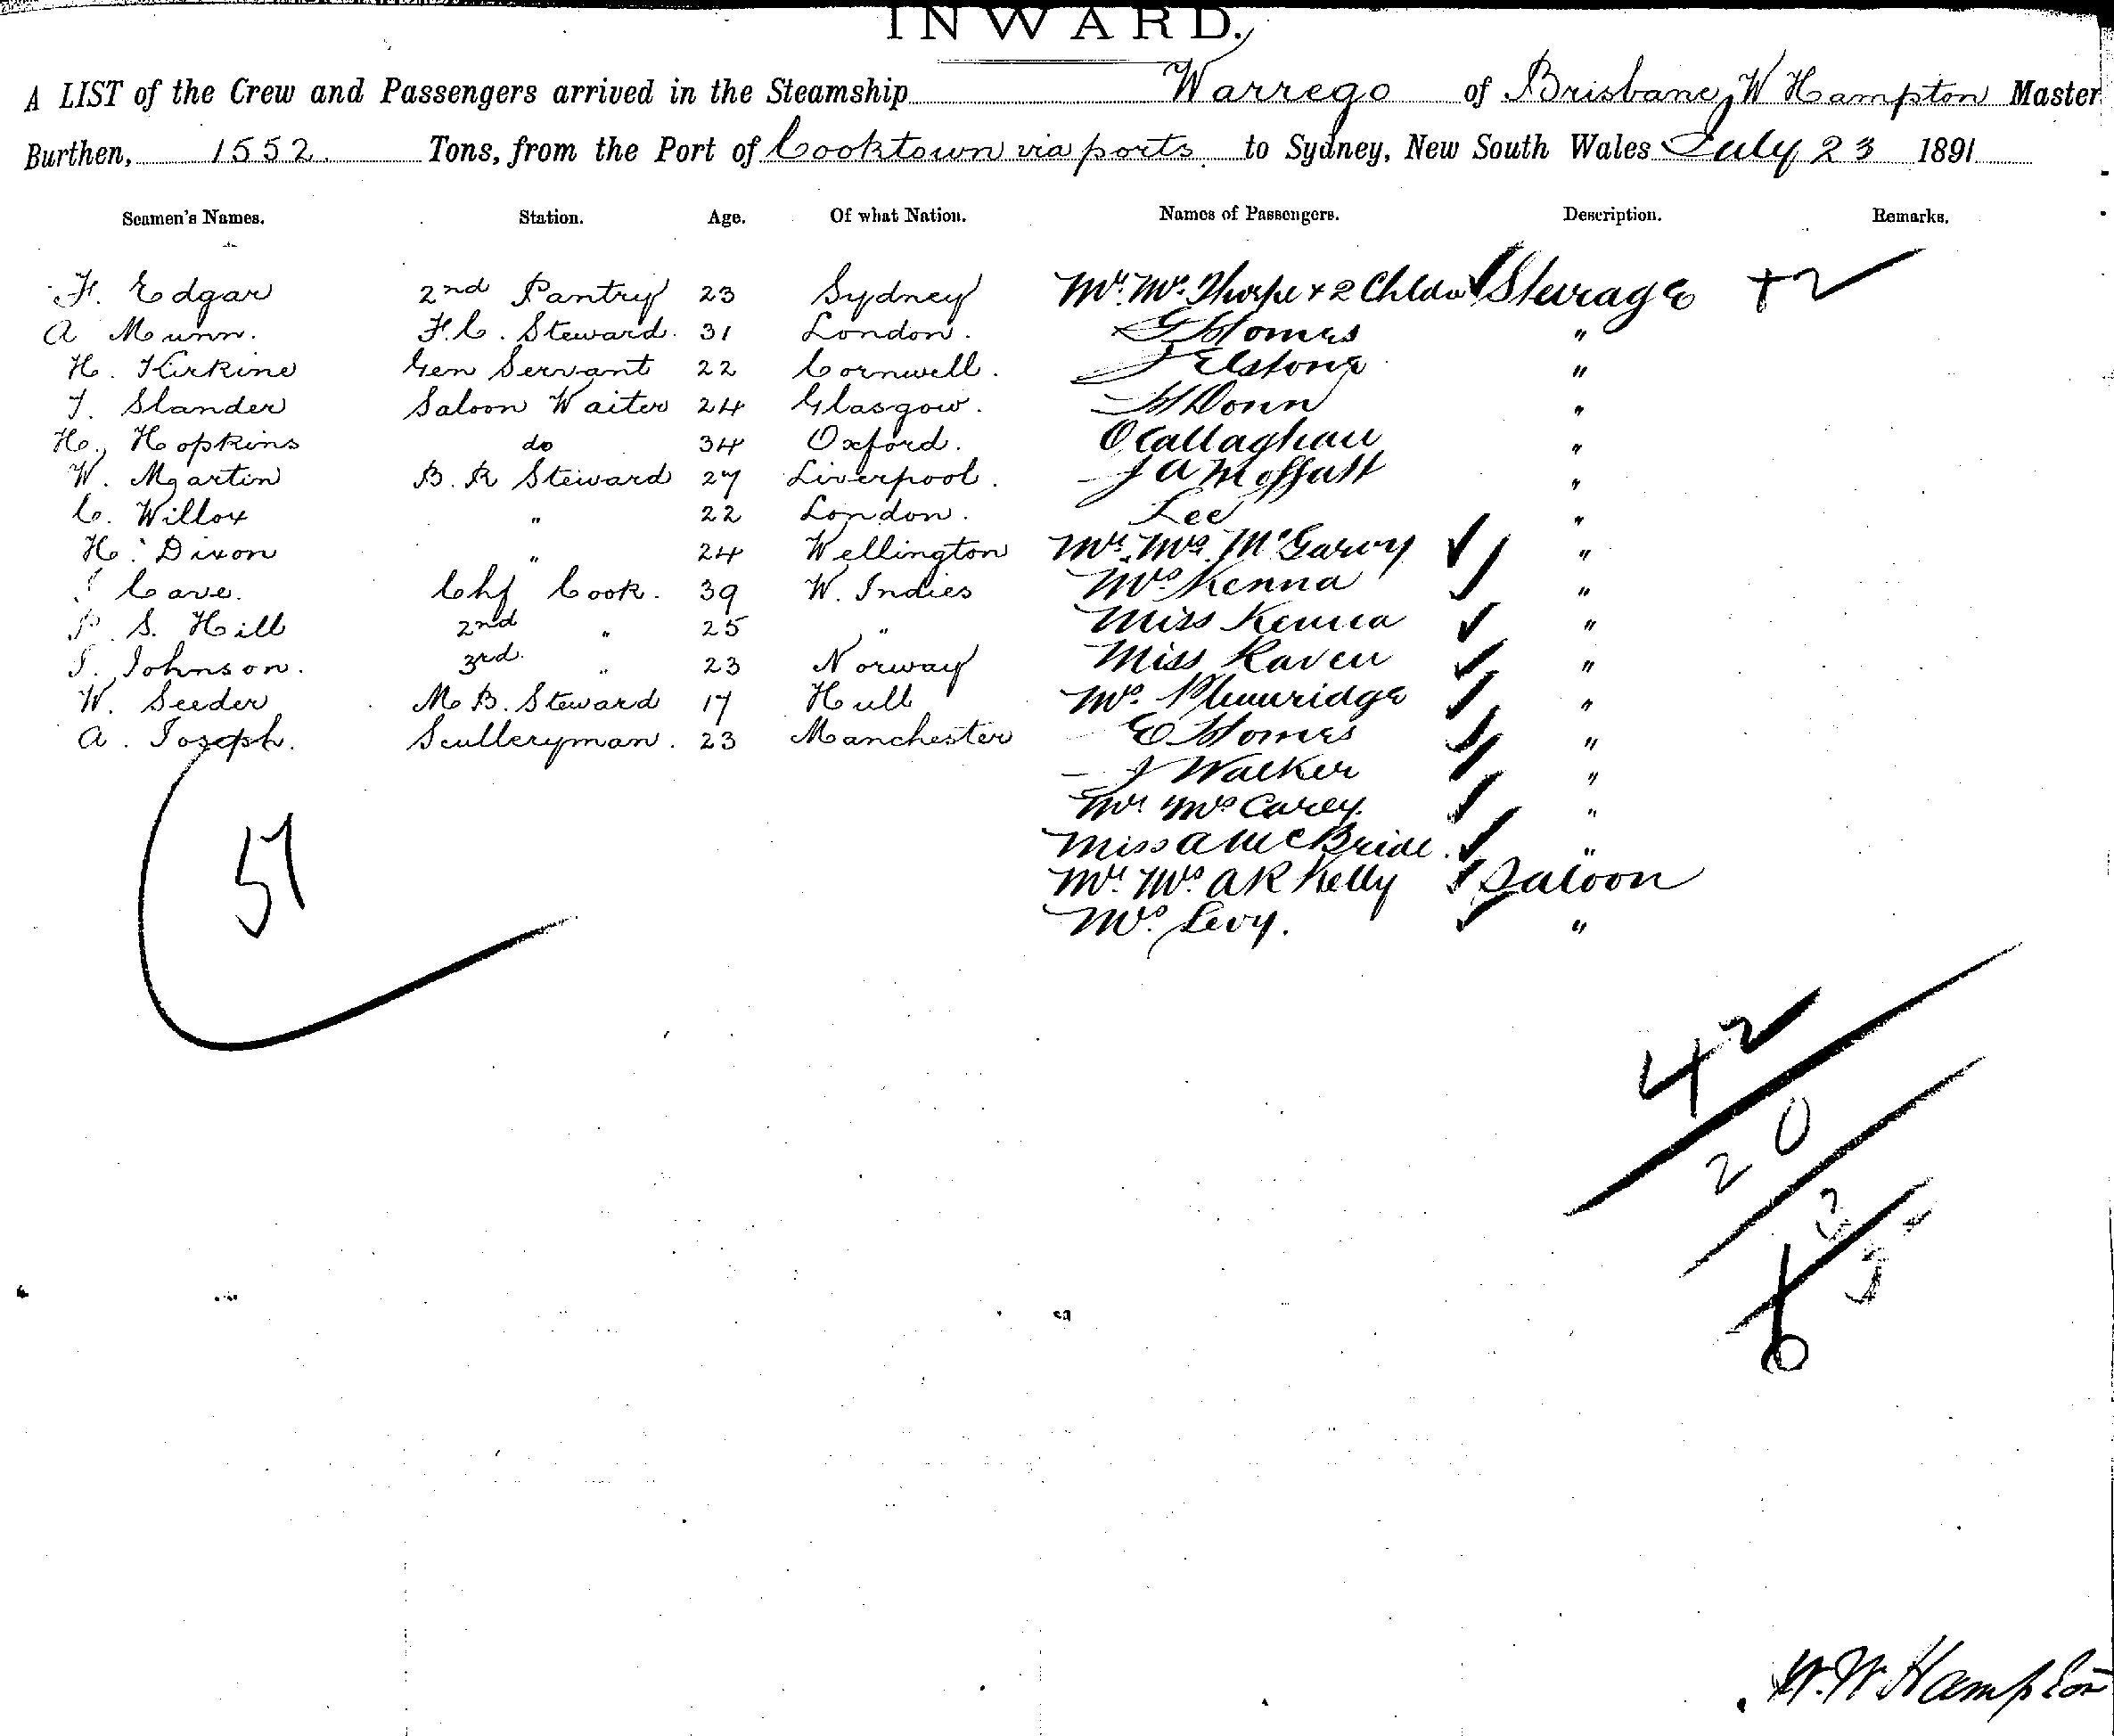 INWARD.
A LIST of the Crew and Passengers arrived in the Steamship Warrego of Brisbane, W Hampton Master
Burthen, 1552. Tons, from the Port of Cooktown via ports. to Sydney, New South Wales July 23 1891
Seamen's Names. Station. Age. Of what Nation. Names of Passengers. Description. Remarks.
F. Edgar 2nd Pantry 23 Sydney Mr. Mrs. Thorpe + 2 Chldn Steerage +2
A Munn. F.C. Steward. 31 London. G Homes "
H. Kirkine Gen Servant 22 Cornwell. J Elstone "
T. Slander Saloon Waiter 24 Glasgow. H Donn "
H. Hopkins do 34 Oxford. O Callaghan "
W. Martin B. R Steward 27 Liverpool. J A Moffatt "
C. Willox " 22 London. Lee "
H. Dixon " 24 Wellington Mr. Mrs. McGarvy "
Cave. Chf Cook. 39 W. Indies Mrs Kenna "
P. S. Hill 2nd " 25 " Miss Kenna "
Johnson. 3rd. " 23 Norway Miss Raven "
W. Seeder M. B. Steward 17 Hull Mrs. Plumridge "
A. Joseph. Sculleryman. 23 Manchester E Homes "
J Walker "
Mr Mrs Carey. "
Miss A McBride. "
57 Mr. Mrs. A R Kelly Saloon
Mrs. Levy. "
42
20
W. W Hampton